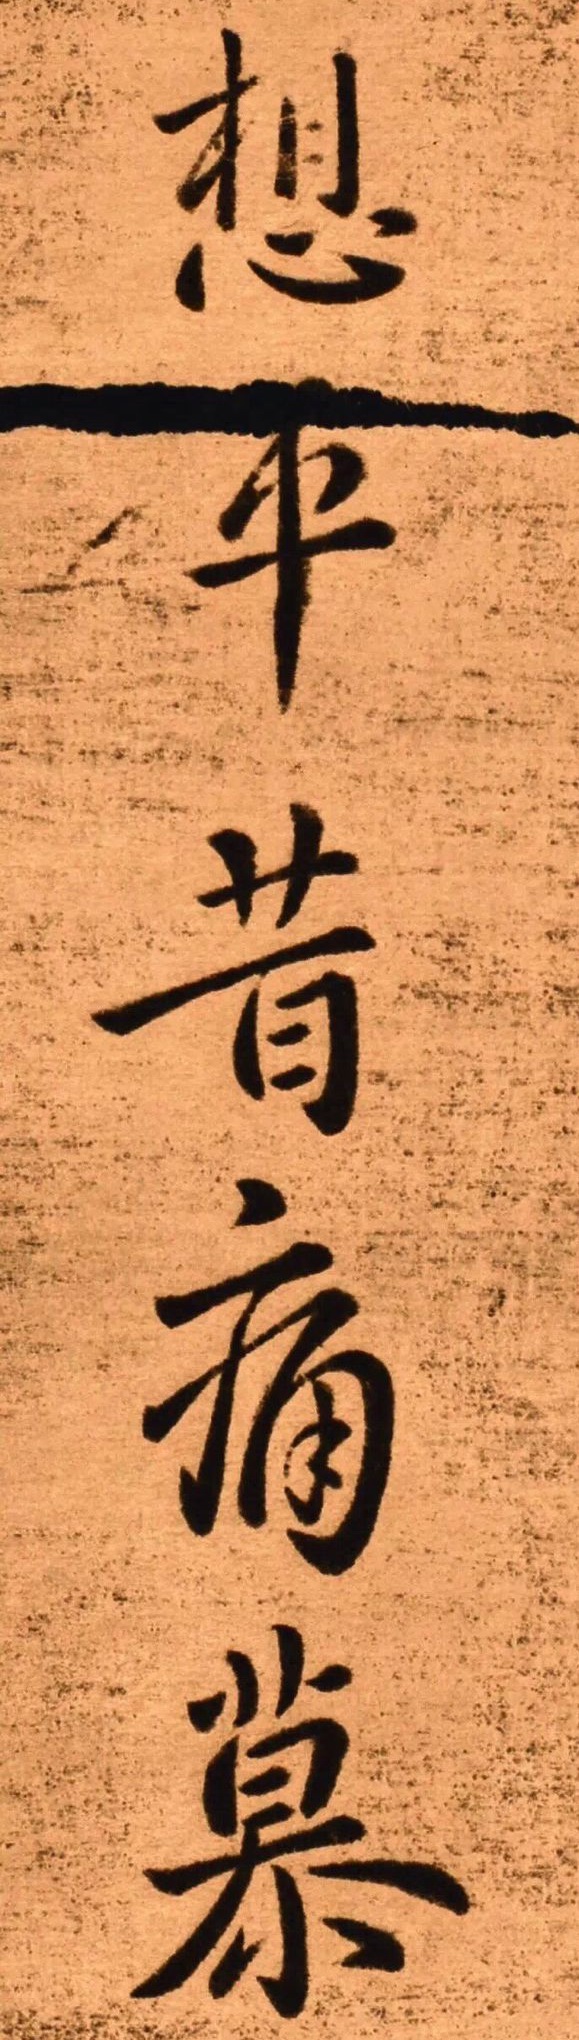 想平昔痛慕